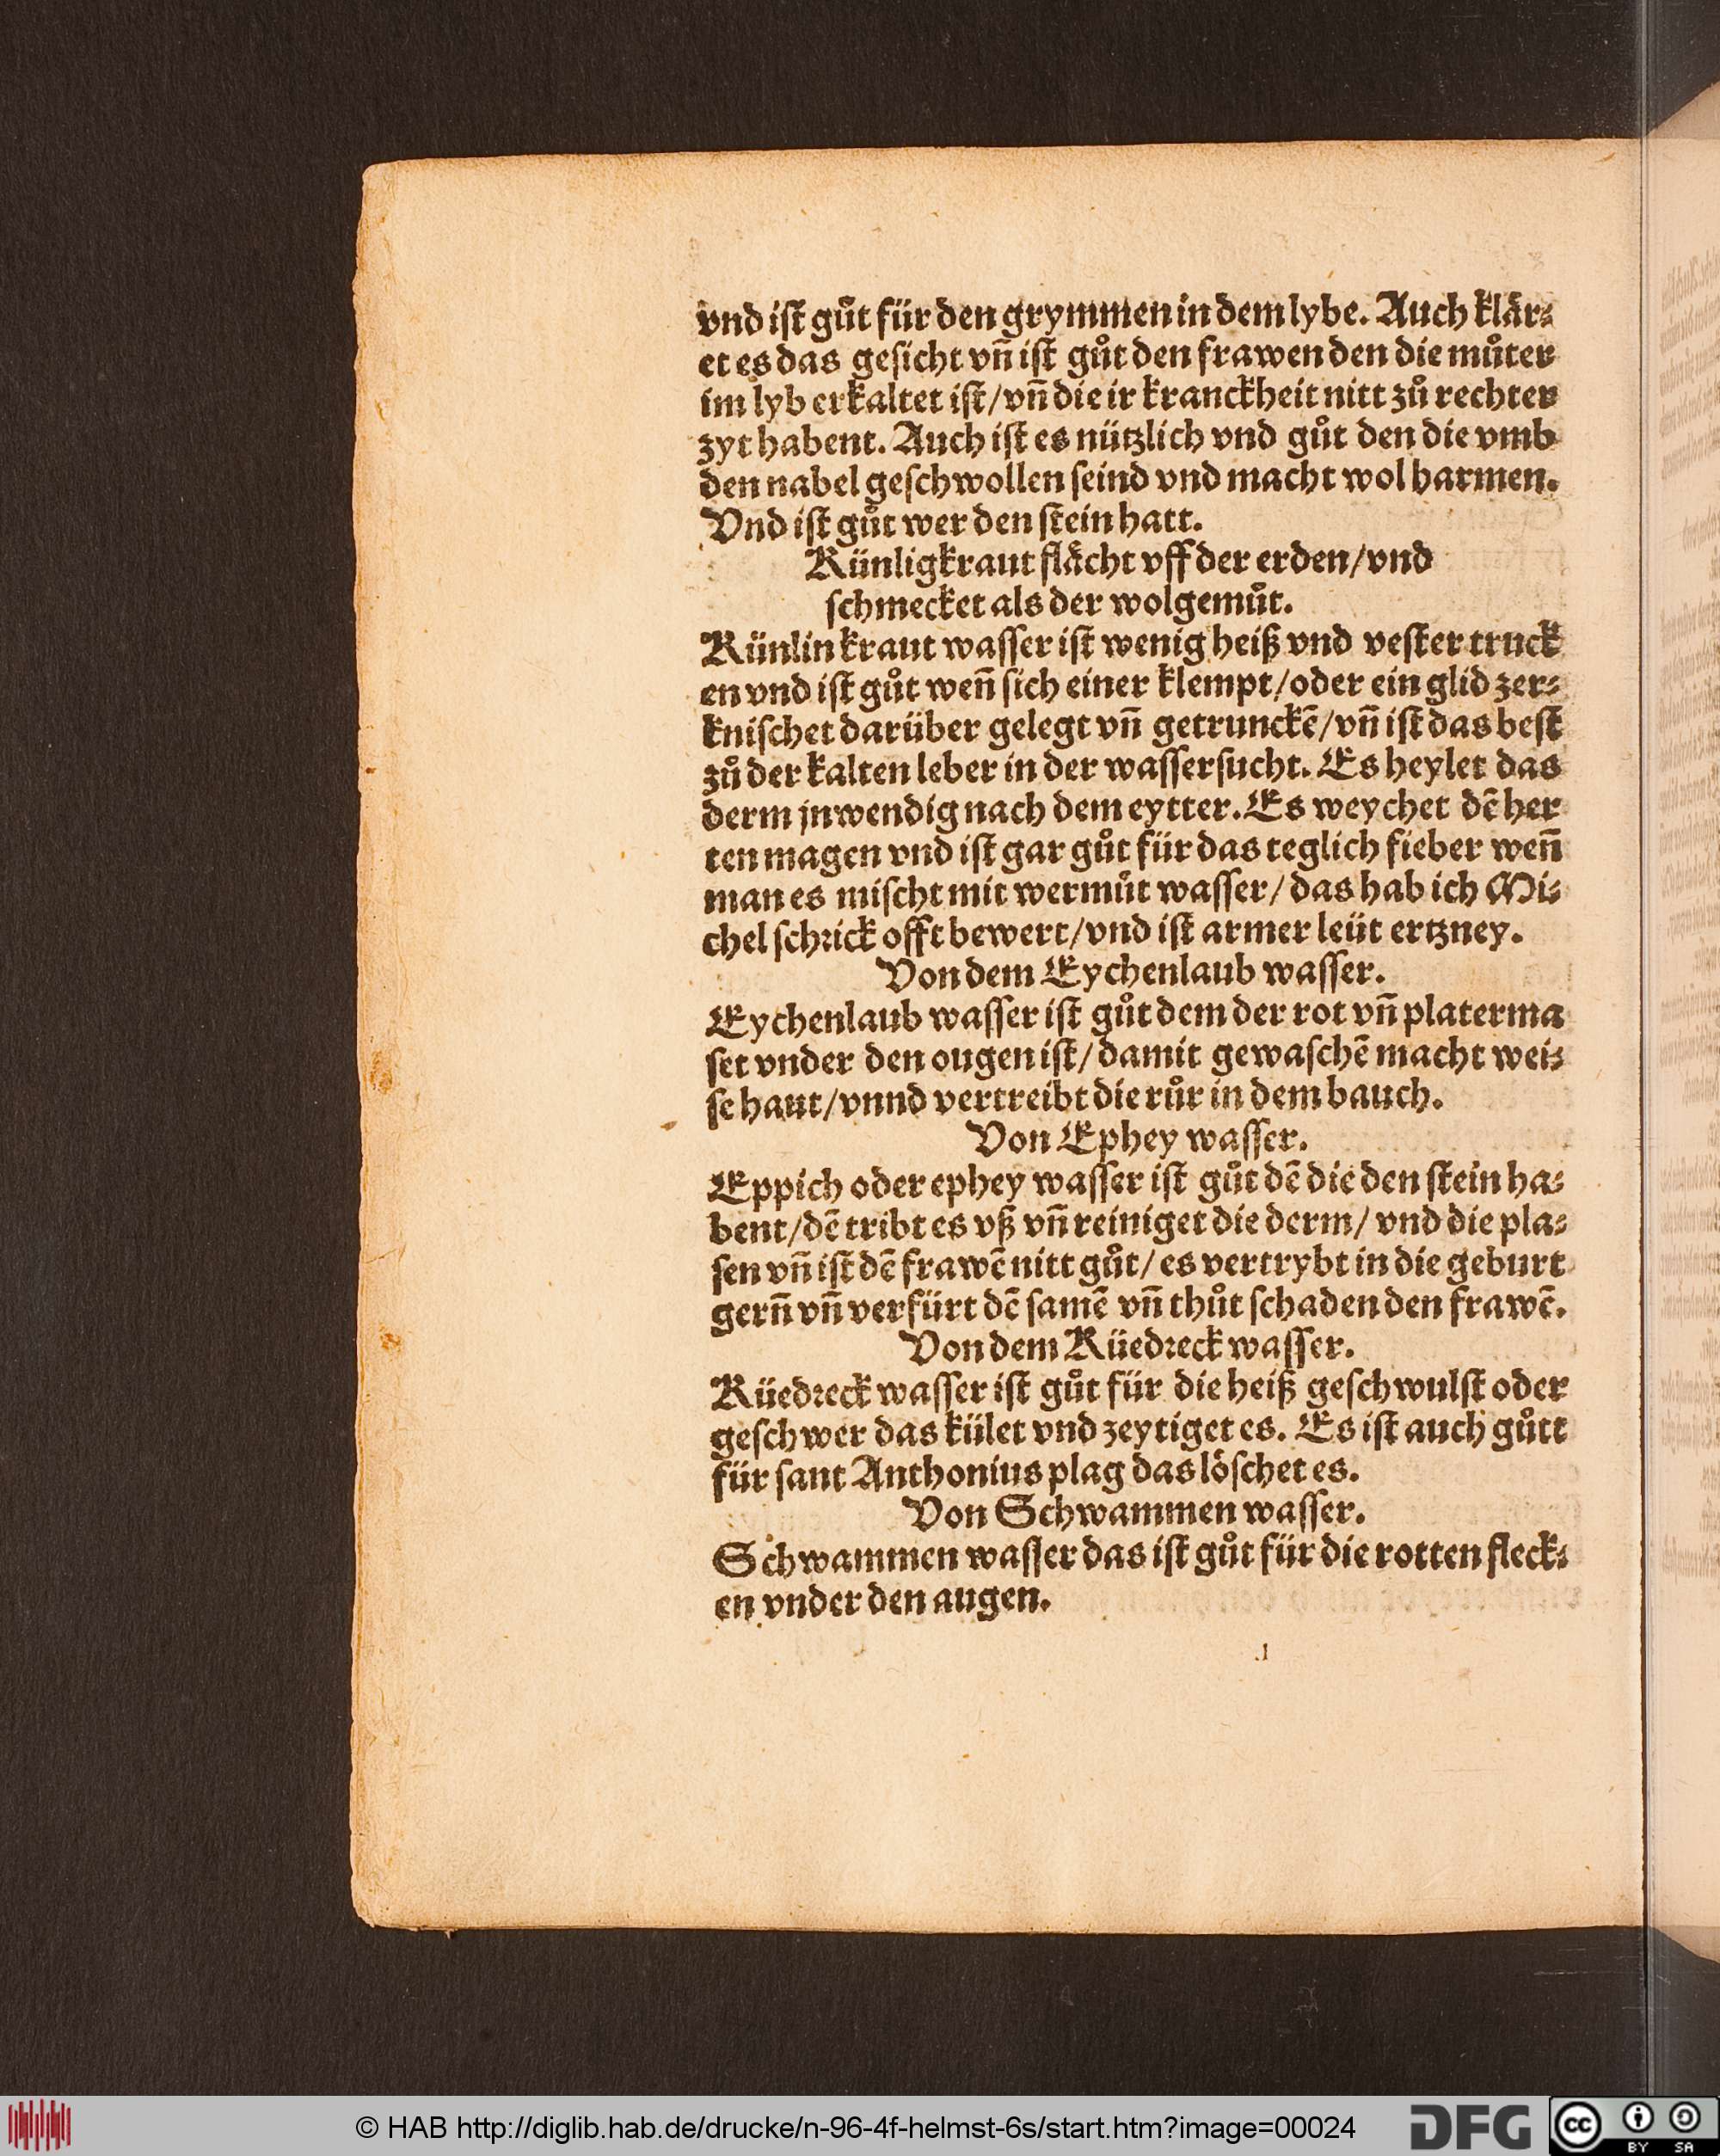 vnd iſt gůt für den grymmen in dem lybe. Auch klär⸗
et es das geſicht vn̄ iſt gůt den frawen den die můter
im lyb erkaltet iſt/vn̄ die ir kranckheit nitt zů rechter
zyt habent. Auch iſt es nützlich vnd gůt den die vmb
den nabel geſchwollen ſeind vnd macht wol harmen.
Vnd iſt gůt wer den ſtein hatt.
Künligkraut flächt vff der erden/vnd
ſchmecket als der wolgemůt.
Künlin kraut waſſer iſt wenig heiß vnd veſter truck
en vnd iſt gůt wen̄ ſich einer klempt/oder ein glid zer⸗
kniſchet darüber gelegt vn̄ getrunckē/vn̄ iſt das beſt
zů der kalten leber in der waſſerſucht. Es heylet das
derm jnwendig nach dem eytter. Es weychet dē her
ten magen vnd iſt gar gůt für das teglich fieber wen̄
man es miſcht mit wermůt waſſer/ das hab ich Mi⸗
chel ſchrick offt bewert/vnd iſt armer leüt ertzney.
Von dem Eychenlaub waſſer.
Eychenlaub waſſer iſt gůt dem der rot vn̄ platerma
ſet vnder den ougen iſt/ damit gewaſchē macht wei⸗
ſe haut/vnnd vertreibt die růr in dem bauch.
Von Ephey waſſer.
Eppich oder ephey waſſer iſt gůt dē die den ſtein ha⸗
bent/dē tribt es vß vn̄ reiniget die derm/ vnd die pla⸗
ſen vn̄ iſt dē frawē nitt gůt/ es vertrybt in die geburt
gern̄ vn̄ verfürt dē ſamē vn̄ thůt ſchaden den frawē.
Von dem Küedreck waſſer.
Küedreck waſſer iſt gůt für die heiß geſchwulſt oder
geſchwer das kület vnd zeytiget es. Es iſt auch gůtt
für ſant Anthonius plag das löſchet es.
Von Schwammen waſſer.
Schwammen waſſer das iſt gůt für die rotten fleck⸗
en vnder den augen.
© HAB http://diglib.hab.de/drucke/n-96-4f-helmst-6s/start.htm?image=00024
DFG
cc BY SA